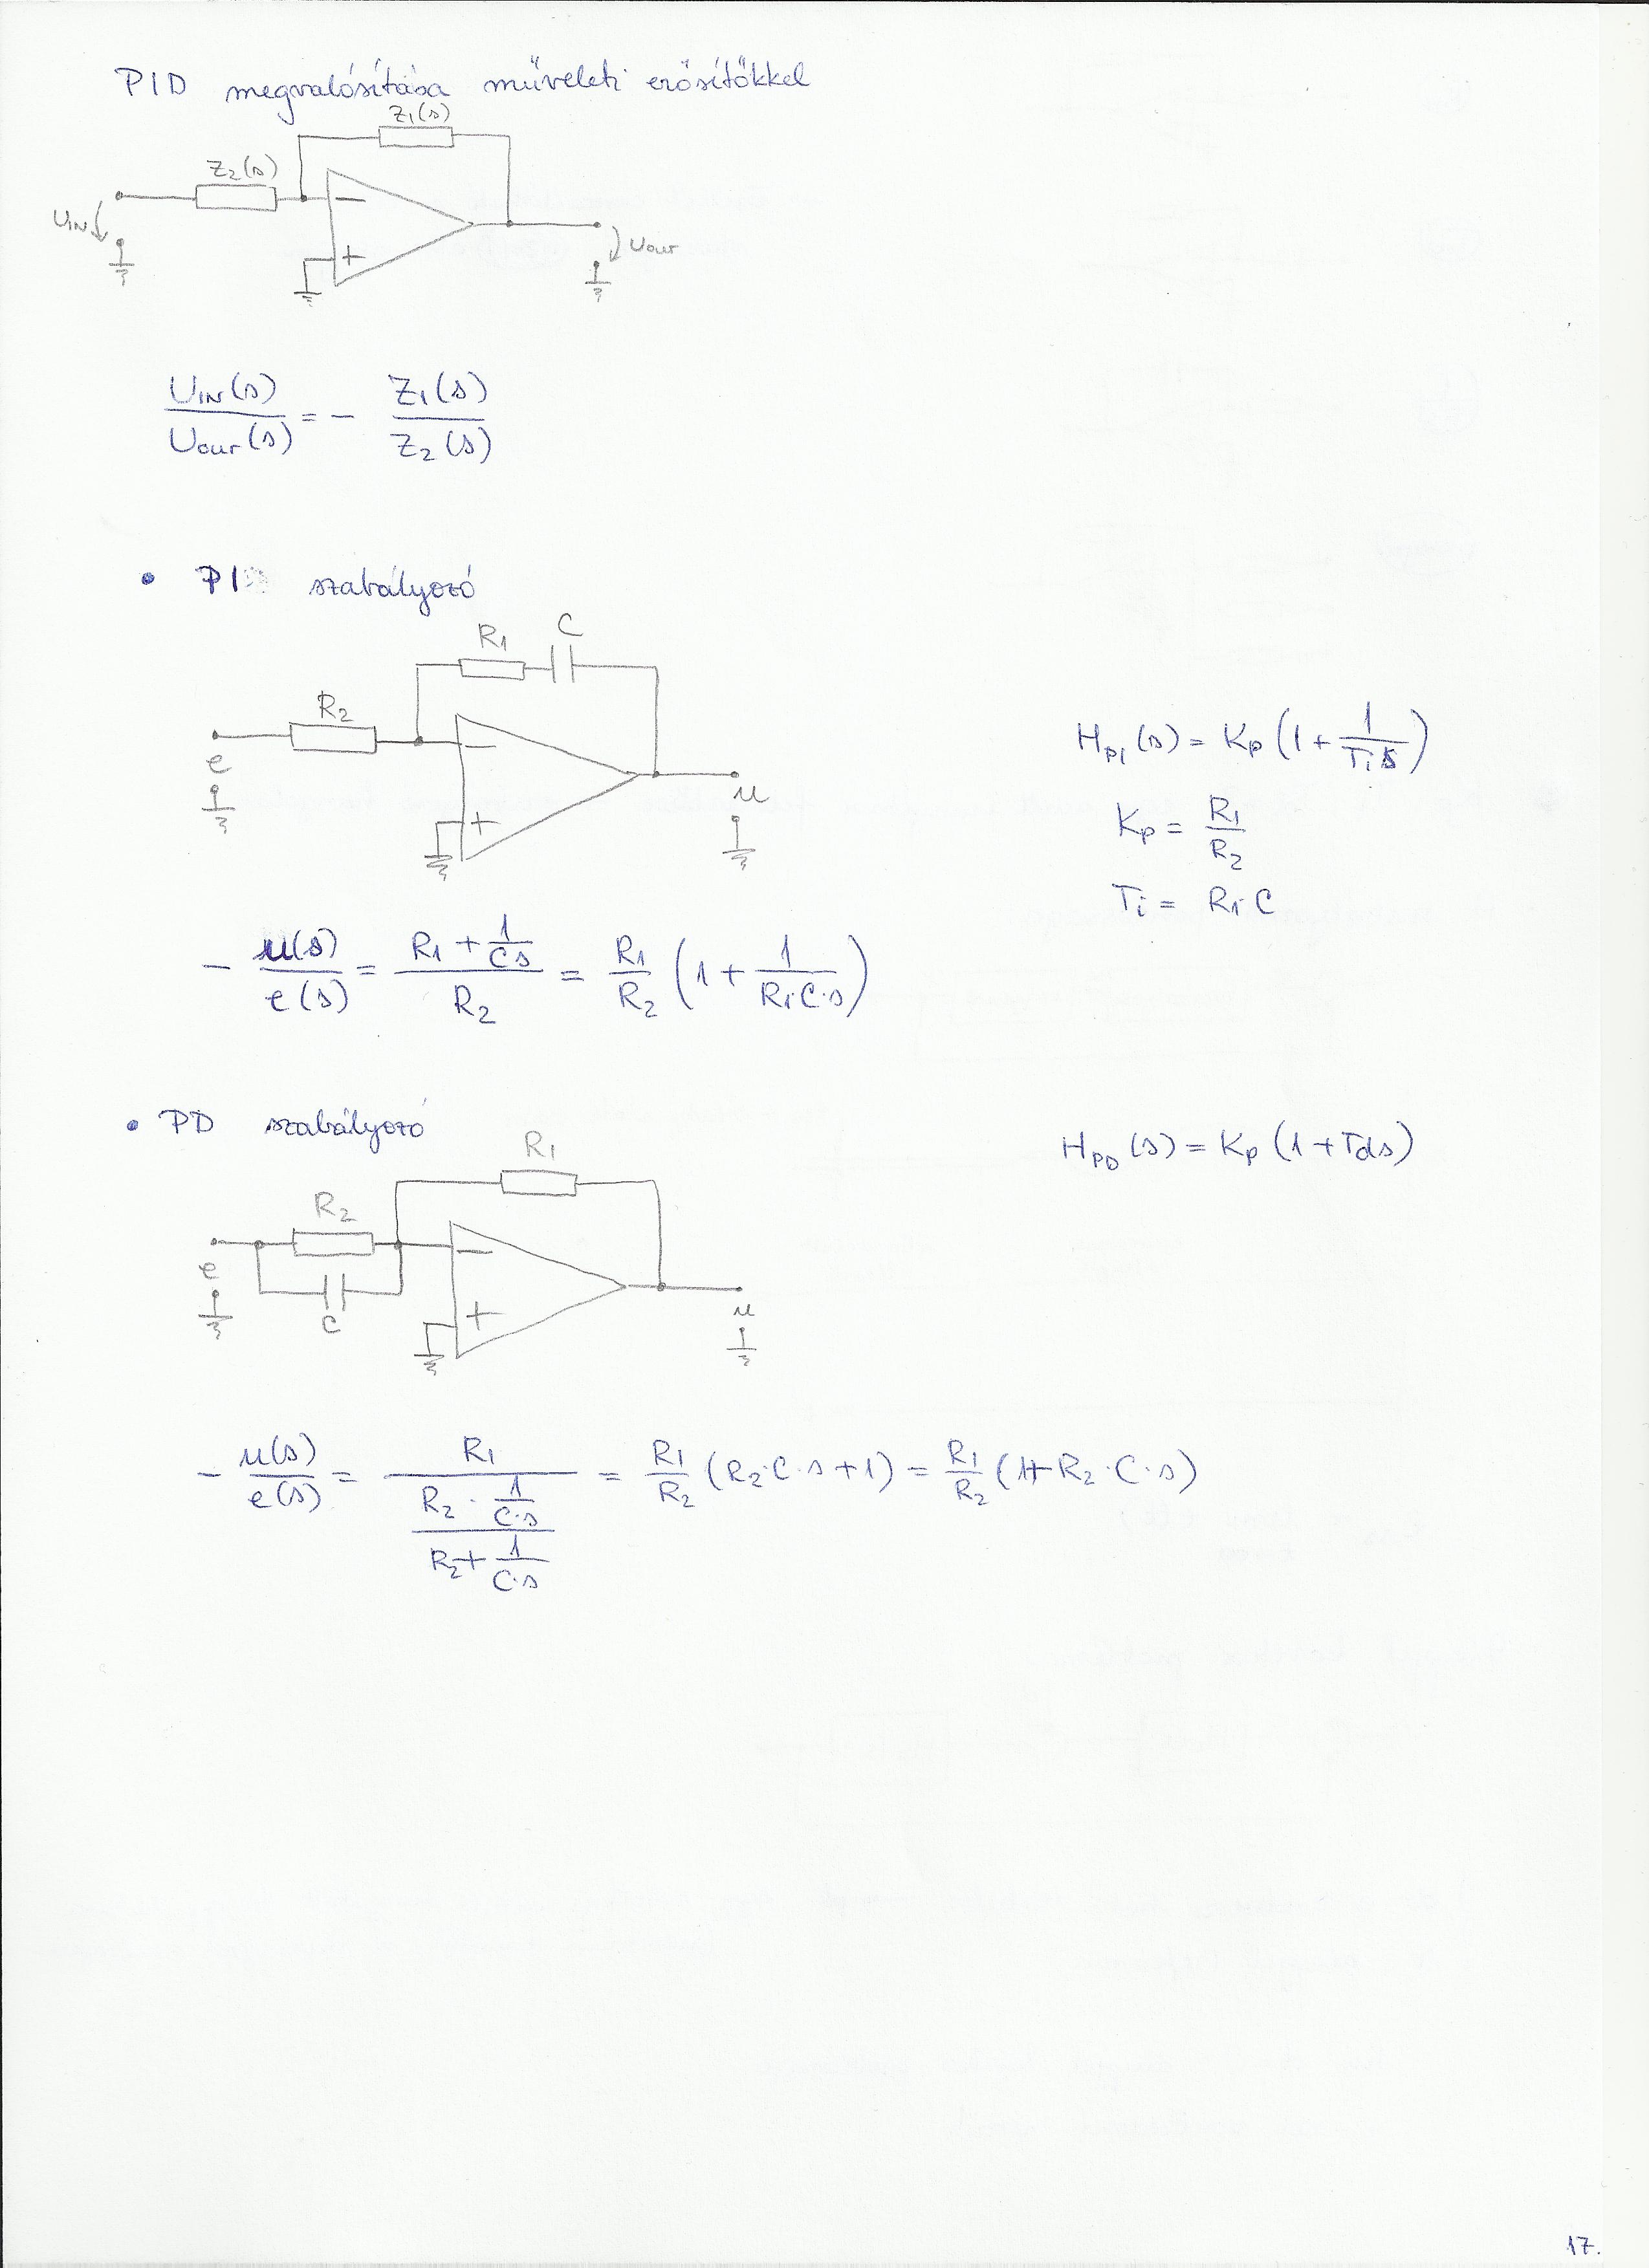 PID megvalósítása műveleti erősítőkkel
Z1(s)
Z2(s)
UIN
−
+
UOUT
UIN(s)/UOUT(s) = − Z1(s)/Z2(s)
• PI szabályozó
R1 C
R2
e
−
+
u
HPI(s) = Kp (1 + 1/(Ti s))
Kp = R1/R2
Ti = R1·C
− u(s)/e(s) = (R1 + 1/(Cs))/R2 = R1/R2 (1 + 1/(R1·C·s))
• PD szabályozó
HPD(s) = Kp (1 + Tds)
R1
R2
e
C
−
+
u
− u(s)/e(s) = R1/((R2 · 1/(C·s))/(R2 + 1/(C·s))) = R1/R2 (R2·C·s + 1) = R1/R2 (1 + R2·C·s)
17.